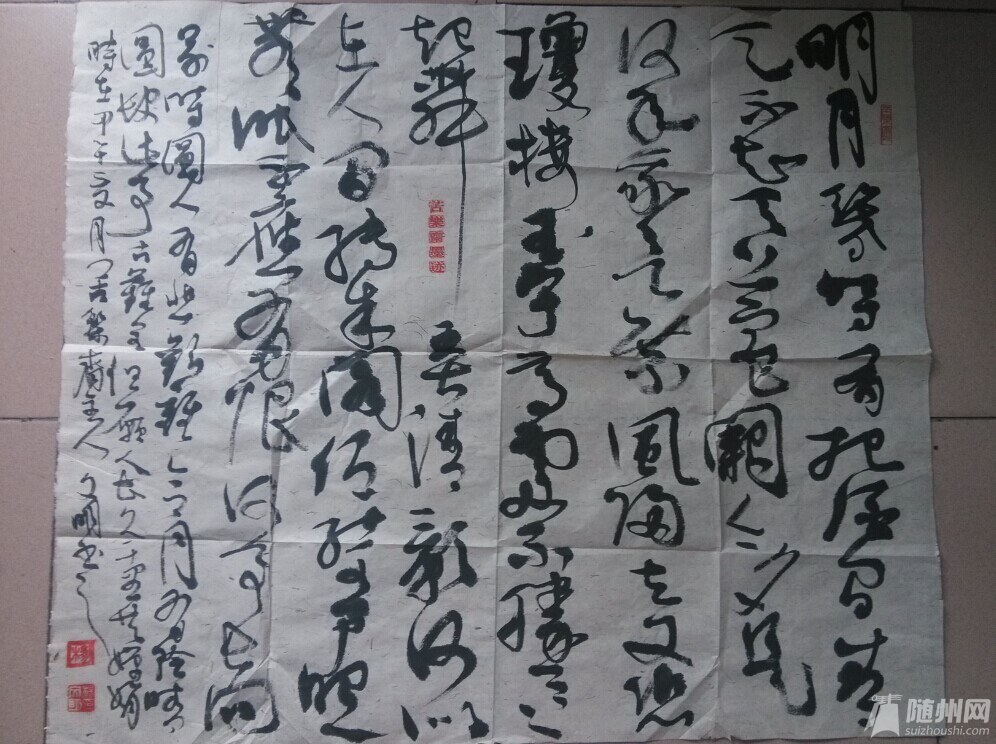 明月幾時有把酒问青
天不知天上宫闕今夕是
何年我欲乘風归去又恐
瓊楼玉宇高處不勝寒
起舞弄清影何似
在人间转朱阁低绮户照
無眠不應有恨何事长向
别時圆人有悲歡離合月有陰晴
圆缺此事古難全但願人长久千里共嬋娟
時在甲午夏月苦樂齋主人文明书
苦樂齋墨迹
随州网
suizhoushi.com